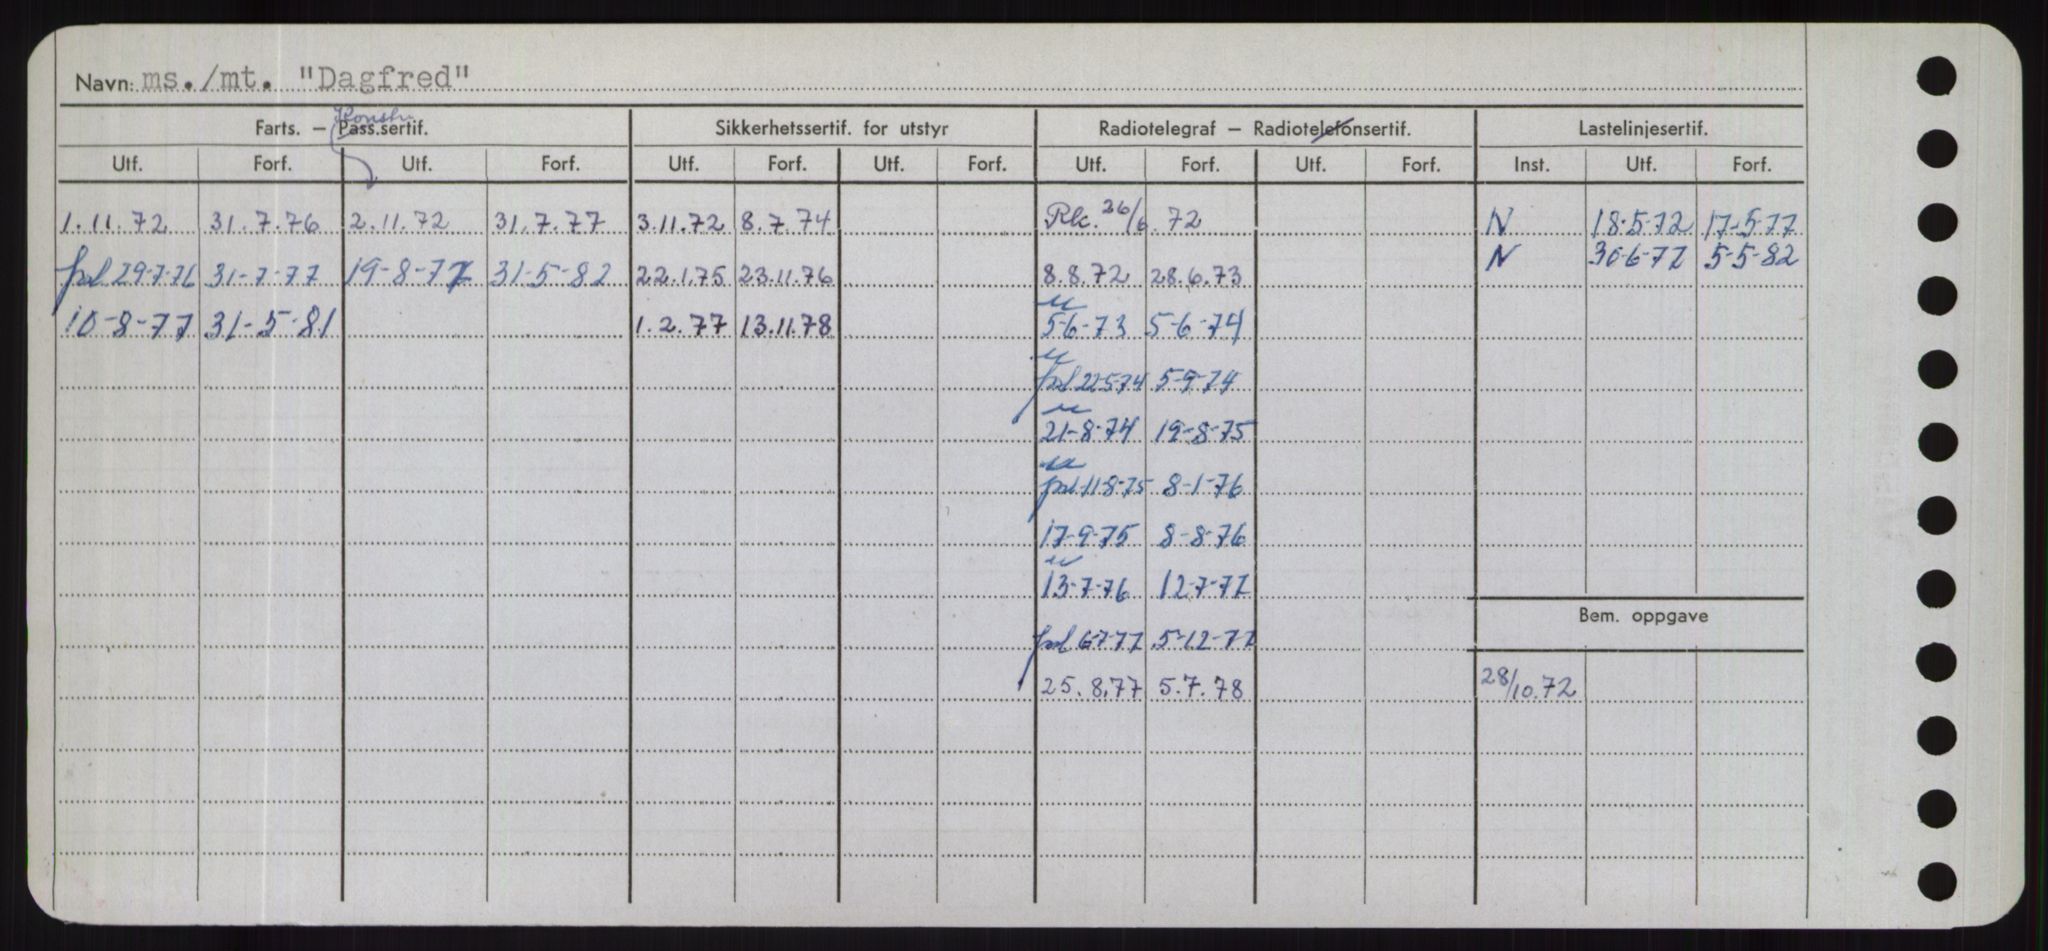 Navn: ms./mt. "Dagfred"
Konstr.
Farts. – Pass.sertif. Sikkerhetssertif. for utstyr Radiotelegraf – Radiotelefonsertif. Lastelinjesertif.
Utf. Forf. Utf. Forf. Utf. Forf. Utf. Forf. Utf. Forf. Utf. Forf. Inst. Utf. Forf.
1.11.72 31.7.76 2.11.72 31.7.77 3.11.72 8.7.74 Rk. 26/6.72 N 18-5-72 17-5-77
N 30-6-77 5-5-82
29-7-76 31-7-77 19-8-77 31-5-82 22.1.75 23.11.76 8.8.72 28.6.73
10-8-77 31-5-81 1.2.77 13.11.78 5-6-73 5-6-74
22-5-74 5-9-74
21-8-74 19-8-75
11-8-75 8-1-76
17-9-75 8-8-76
13-7-76 12-7-77
Bem. oppgave
6-7-77 5-12-77
25.8.77 5.7.78 28/10.72